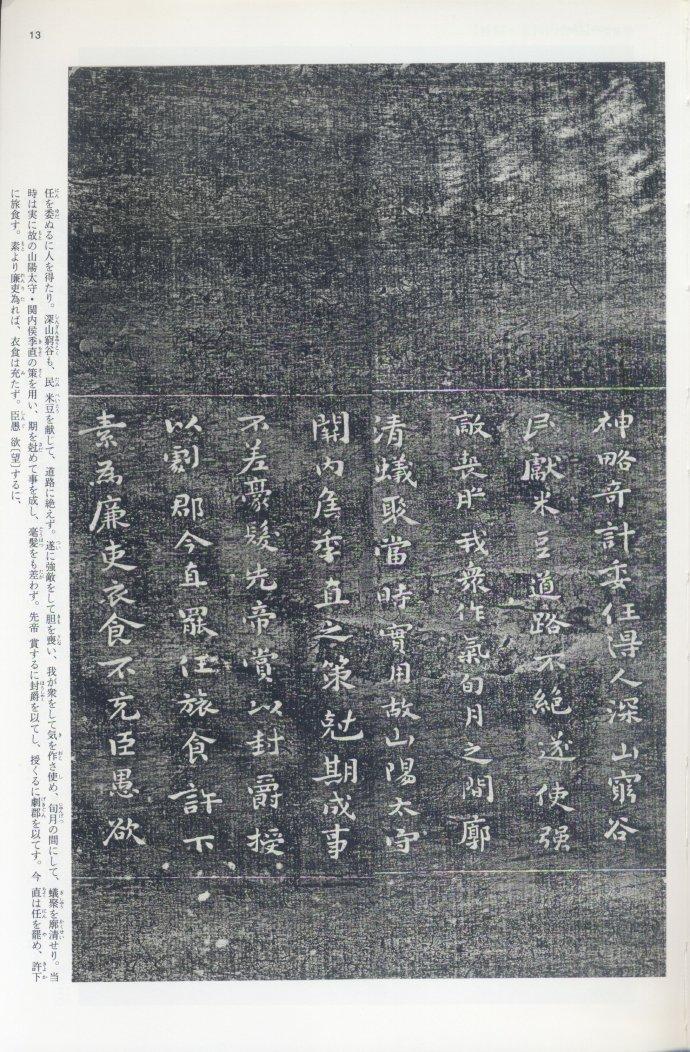 13
神略奇計委任得人深山窮谷
民獻米豆道路不絶遂使强
敵喪胆我衆作氣旬月之間廓
清蟻聚當時實用故山陽太守
關内侯季直之策尅期成事
不差豪髮先帝賞以封爵授
以劇郡今直罷任旅食許下
素爲廉吏衣食不充臣愚欲
任を委ぬるに人を得たり。深山窮谷も、民 米豆を献じて、道路に絶えず。遂に強敵をして胆を喪い、我が衆をして気を作さ使め、旬月の間にして、蟻聚を廓清せり。当
時は実に故の山陽太守・関内侯季直の策を用い、期を尅めて事を成し、毫髪をも差わず。先帝 賞するに封爵を以てし、授くるに劇郡を以てす。今 直は任を罷め、許下
に旅食す。素より廉吏為れば、衣食は充たず。臣愚 欲〔望〕するに、